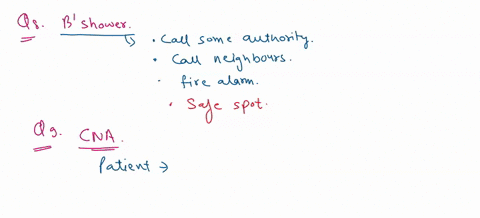 Q8. B' shower.
• Call some authority.
• Call neighbours.
• fire alarm.
• Safe spot.
Q9. CNA.
Patient →